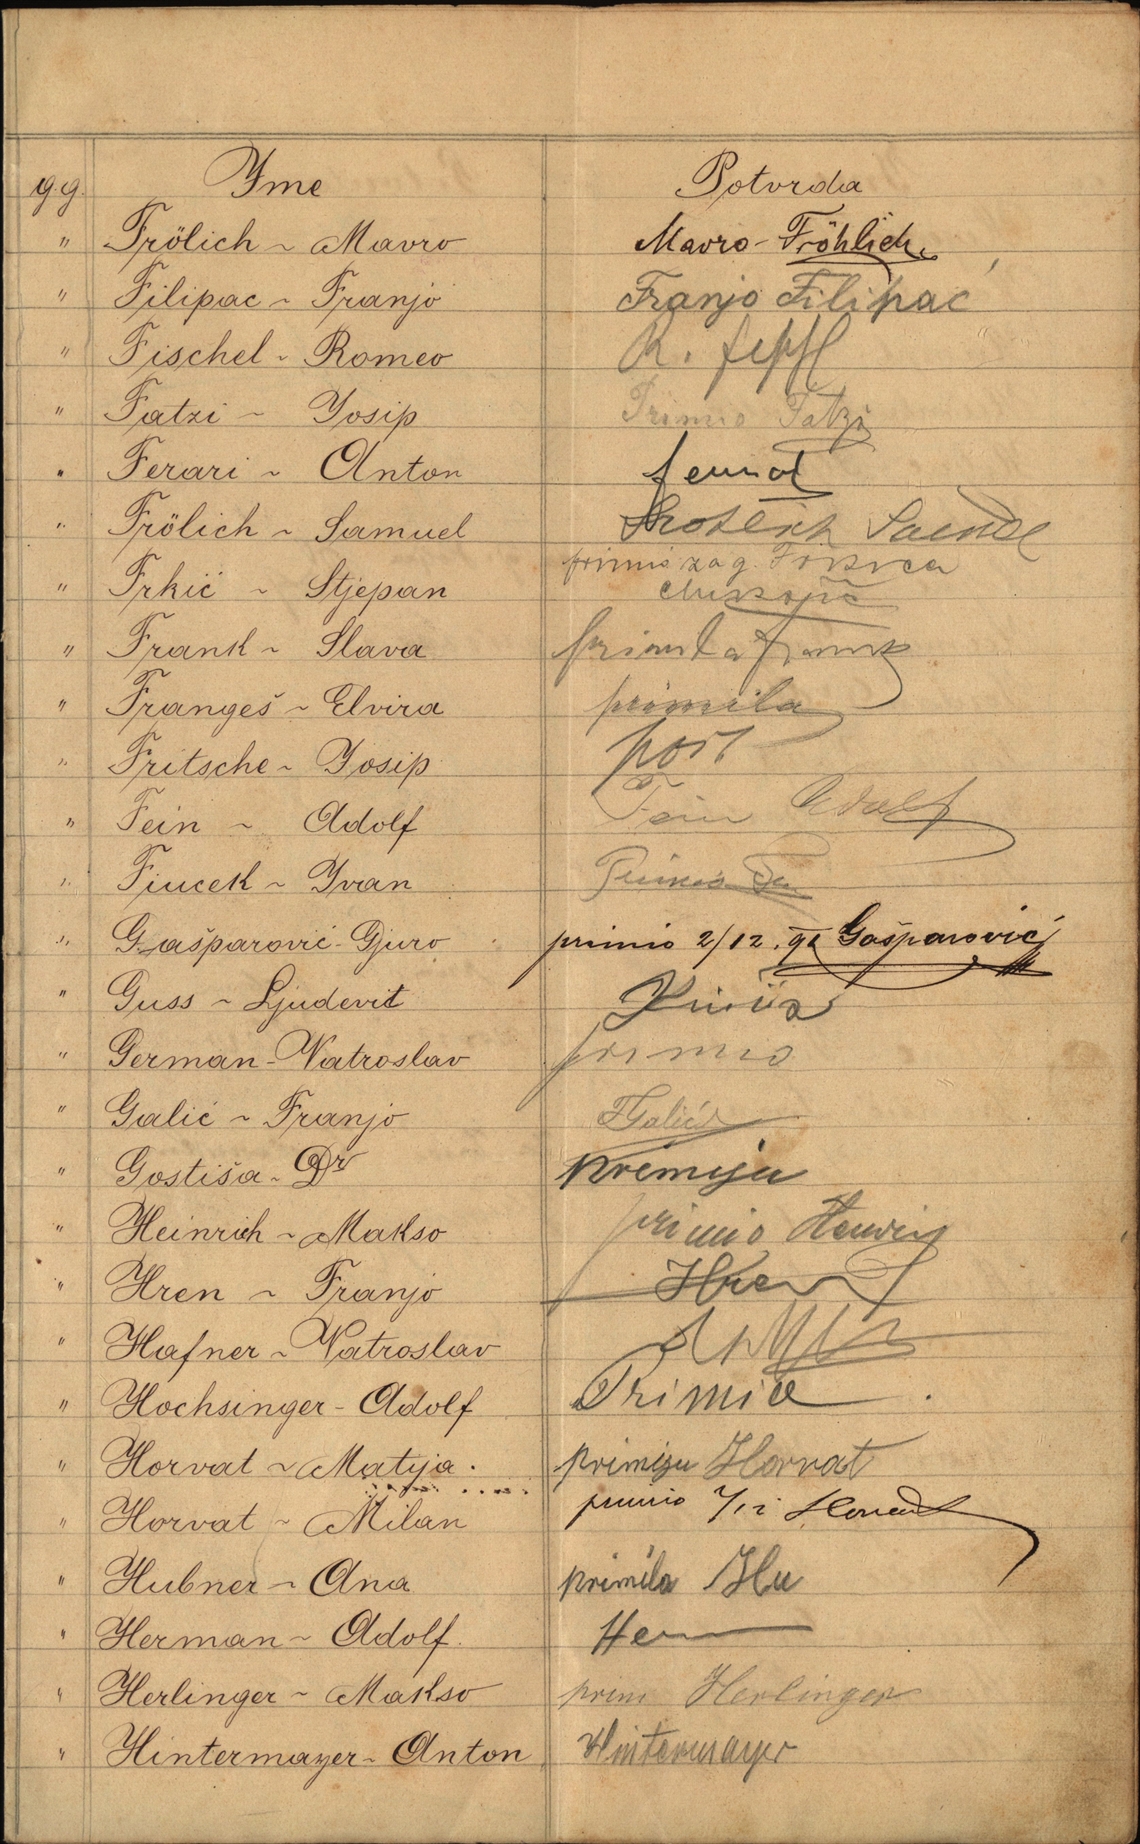 g.g. Ime Potvrda
" Frölich ~ Mavro Mavro Fröhlich
" Filipac ~ Franjo Franjo Filipac
" Fischel ~ Romeo R.
" Fatzi ~ Josip Primio Fatzi
" Ferari ~ Anton
" Frölich ~ Samuel
primio za g.
" Frkić ~ Stjepan
" Frank ~ Slava primila Frank
" Frangeš ~ Elvira primila
" Fritsche ~ Josip
" Fein ~ Adolf Fein Adolf
" Fiucek ~ Ivan Primio
" Gašparović - Gjuro primio 2/12. Gašparović
" Guss ~ Ljudevit
" German - Vatroslav primio
" Galić ~ Franjo FGalić
" Gostiša ~ Dr primiju
" Heinrich ~ Makso primio
" Hren ~ Franjo Hren
" Hafner ~ Vatroslav
" Hochsinger - Adolf Primio
" Horvat ~ Matija. Horvat
" Horvat ~ Milan primio
" Hubner ~ Ana primila Hu
" Herman ~ Adolf. He
" Herlinger ~ Makso prim Herlinger
" Hintermayer ~ Anton Hintermayer